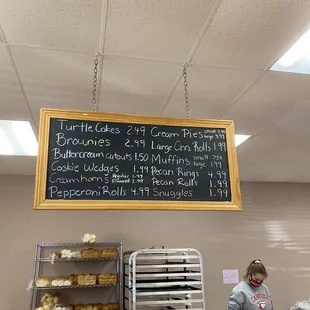 Turtle Cakes 2.49
Brownies 2.99
Buttercream cutouts 1.50
Cookie Wedges 1.99
Creamhorns Regular .99
Pepperoni Rolls 4.99
Cream Pies Small .99
Large 1.99
Large Cinn. Rolls 1.99
Muffins Small .75¢
large 1.99
Pecan Rolls 4.99
Pecan Rolls 1.99
Snuggles 1.99